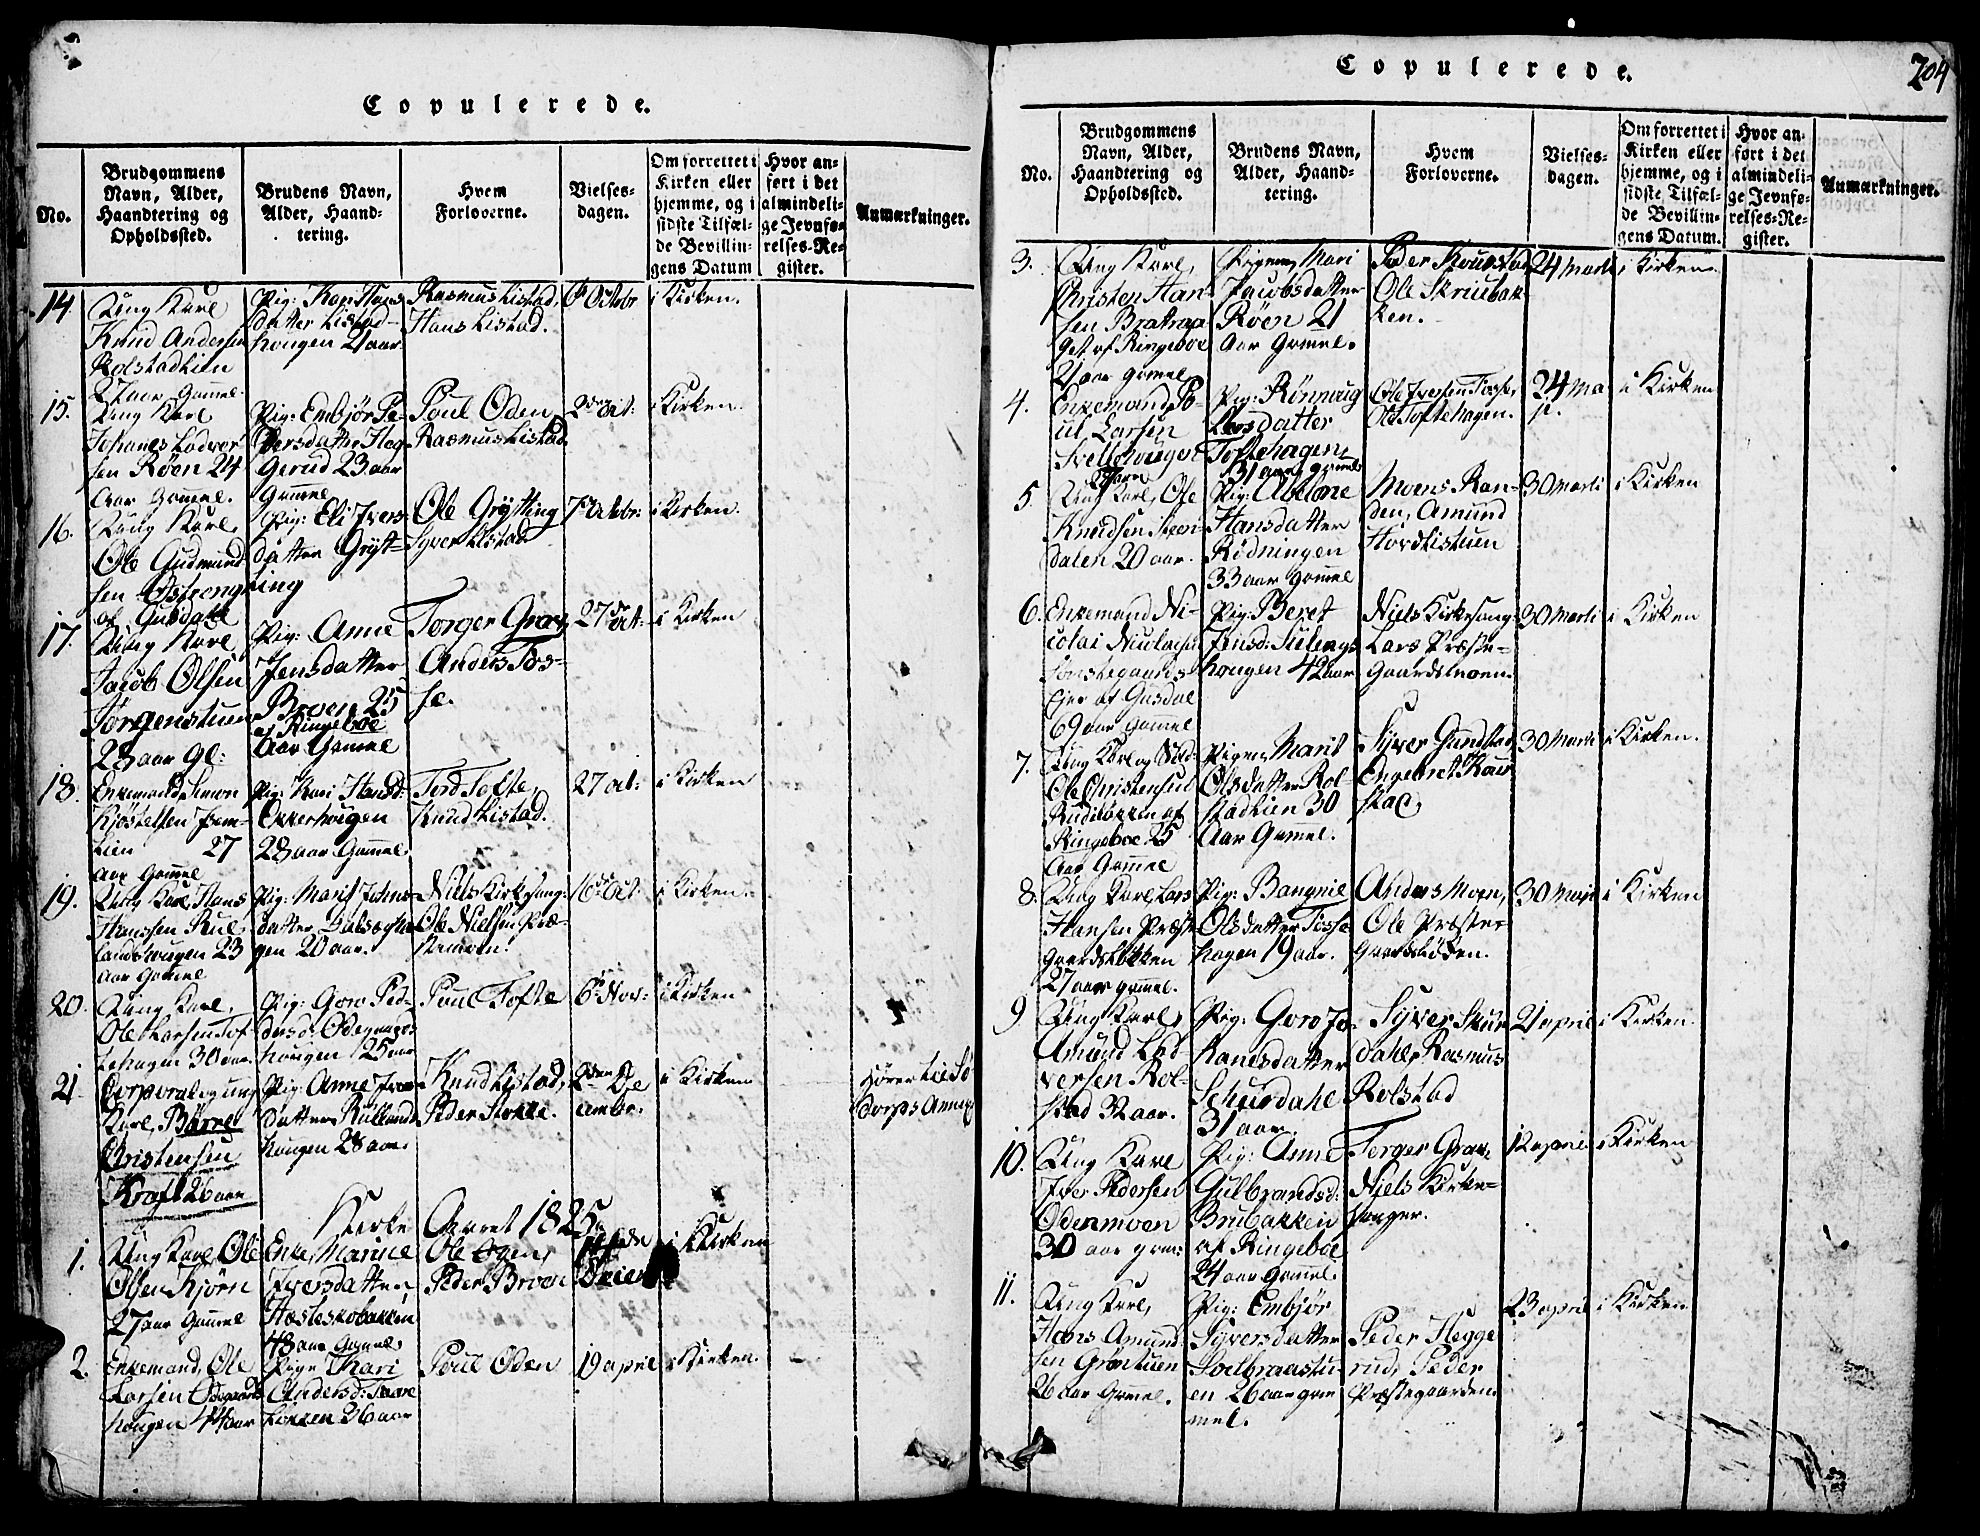 Copulerede.
No.
Brudgommens
Navn, Alder,
Haandtering og
Opholdssted.
Brudens Navn,
Alder, Haand-
tering.
Hvem
Forloverne.
Vielses-
dagen.
Om forrettet i
Kirken eller
hjemme, og i
sidste Tilfæl-
de Bevillin-
gens Datum
Hvor an-
ført i det
almindeli-
ge Jevnfø-
relses-Re-
gister.
Anmærkninger.
14.
Ung Karl
Knud Andersen
Rolstadlien
27 aar Gammel.
Pig: Kari Hans
datter Listad-
hougen 21 aar
Rasmus Listad,
Hans Listad.
6 Octobr
i Kirken.
15.
Ung Karl
Johanes Lodver
sen Röen 24
Aar Gammel.
Pig: Embjör Pe-
dersdatter Heg-
gerud 23 aar
Gammel
Poul Oden
Rasmus Listad
Oct:
i Kirken.
16.
Ung Karl,
Ole Gudmund
sen Östeeng
af Gusdahl
Pig: Eli Ivers-
datter Grÿt-
ting
Ole Grÿtting
Syver Listad
7 Octobr:
i Kirken.
17.
Ung Karl,
Jacob Olsen
Jörgenstuen
28 aar gl:
Pig: Anne
Jensdatter
Broen 25
af Ringeboe
Aar Gammel
Torger Grav,
Anders Fos-
se.
27 Oct:
i Kirken
18.
Enkemand Simon
Kjöstelsen
lien 27
aar Gammel
Pig: Kari Hansd:
Ekkerhaugen
28 aar Gammel,
Tord Tofte,
Knud Listad.
27 Oct:
i Kirken
19.
Ung Karl Hans
Hanssen
23
Aar Gammel
Pig: Marit
datter
gen 20 aar.
Niels Kirkesang:
Ole Nielsen
16 Oct:
i Kirken.
20.
Ung Karl,
Ole Larsen Tof-
tehagen 30 aar.
Pig: Goro Ped-
dersd: Ödegaards
hougen 25 aar
Poul Tofte
6 Nov:
i Kirken
21
Corporal og ung
Karl, Börre
Christensen
Kraft 26 aar
Pig: Anne Iver
datter
hougen 28 aar.
Knud Listad,
Peder Stokke.
2den De
cembr.
i Kirken
Hörer til Sö
dorps Annex
Kirke Aaret 1825.
1.
Ung Karl, Ole
Olsen Kjörn
27 aar Gammel
Enke, Marine
Iversdatter
Hæsteskobakken
48 aar Gammel,
Peder Broen
i Kirken
2.
Enkemand, Ole
Larsen Ödegaards
hougen 44 aar
Pige Kari
Andersd:
26 aar
Poul Oden
19 april
i Kirken.
Copulerede.
204
No.
Brudgommens
Navn, Alder,
Haandtering og
Opholdssted.
Brudens Navn,
Alder, Haand-
tering.
Hvem
Forloverne.
Vielses-
dagen.
Om forrettet i
Kirken eller
hjemme, og i
sidste Tilfæl-
de Bevillin-
gens Datum.
Hvor an-
ført i det
almindeli-
ge Jevnfø-
relses-Re-
gister.
Anmærkninger.
3.
Ung Karl,
Christen Han-
sen
get af Ringeboe
21 aar gammel
Pigen, Mari
Jacobsdatter
Röen 21
Aar Gammel.
Peder Kougstad
Ole Skriubak
ken.
24 Marti
i Kirken.
4.
Enkemand, Po-
ul Larsen
Pig: Rönnaug
Larsdatter
Toftehagen,
31 aar gammel
Ole Iversen Fosse,
Ole Toftehagen.
24 Ma
i Kirken
5
Ung Karl, Ole
Knudsen
dalen 20 aar.
Pig: Abelone
Hansdatter
Rödningen
33 aar Gammel
Moens Ran-
den, Amund
Hovdestuen
30 Marti
i Kirken
6.
Enkemand Ni-
colai Nicolaisen
af Gusdal
69 aar Gammel
Pig: Beret
Jensd:
hougen 42 aar
Niels Kirkesang:
Lars Præste-
Gaardsmoen.
30 Marti
i Kirken
7.
Ung Karl og
Ole Christensen
Rudilökken af
Ringeboe 25
Aar Gammel
Pigen, Marit
Olsdatter Rol-
stadlien 30
Aar Gammel.
Syver Gundstad
Engebret Kou
stad,
30 Marti
i Kirken.
8.
Ung Karl, Lars
Hansen Præst
Gaardslökken
27 aar gammel.
Pig: Bangnil
Olsdatter Fosse
hagen 19 aar.
Anders Moen,
Ole Præste-
gaardslökken.
30 Marti
i Kirken
9
Ung Karl,
Amund Lod-
versen Rol-
stad 32 aar.
Pig: Goro Jo-
hanesdatter
Schurdahl
31 aar.
Syver Skur
dahl, Rasmus
Rolstad
21 april
i Kirken.
10.
Ung Karl
Iver Pedersen
Odenmoen
30 aar gam:
Pig: Anne
Gulbrandsd:
Brubakken
af Ringeboe
24 aar Gammel.
Torger Grav,
Niels Kirke-
sanger.
12 april
i Kirken
11.
Ung Karl,
Hans Amund-
sen Gröntuen
26 aar Gammel.
Pig: Embjör
Syversdatter
Solbraastu-
en 26 aar gam
mel.
Peder Hegge
rud, Peder
Præstegaarden.
23 april
i Kirken